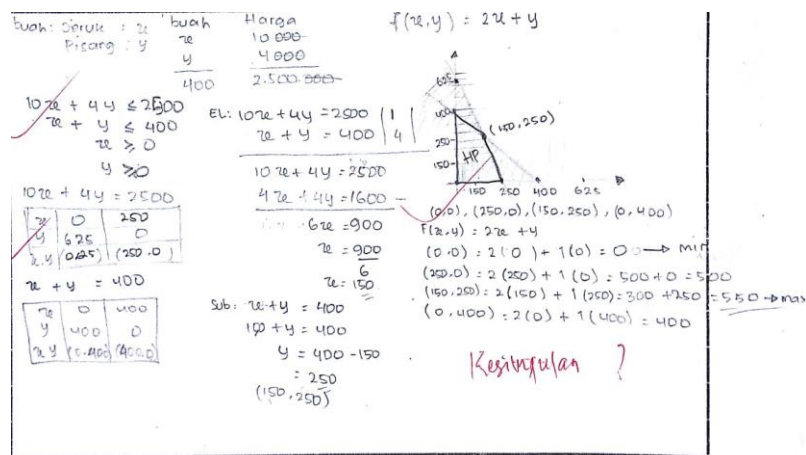 buah: Jeruk : x
Pisang : y
buah Harga
x 10 000
y 4000
400 2.500.000
10x + 4y ≤ 2500
x + y ≤ 400
x ≥ 0
y ≥ 0
10x + 4y = 2500
x 0 250
y 625 0
x.y (0.625) (250.0)
x + y = 400
x 0 400
y 400 0
x y (0.400) (400.0)
EL: 10x + 4y = 2500 | 1
x + y = 400 | 4
10x + 4y = 2500
4x + 4y = 1600 -
6x = 900
x = 900
6
x = 150
Sub: x + y = 400
150 + y = 400
y = 400 - 150
= 250
(150, 250)
f(x,y) = 2x + y
625
400
250
150
(150, 250)
HP
150 250 400 625
(0,0), (250,0), (150,250), (0,400)
F(x,y) = 2x + y
(0.0) : 2(0) + 1(0) = 0 → min
(250.0) : 2(250) + 1(0) = 500 + 0 = 500
(150,250) : 2(150) + 1(250) = 300 + 250 = 550 → max
(0,400) : 2(0) + 1(400) = 400
Kesimpulan ?